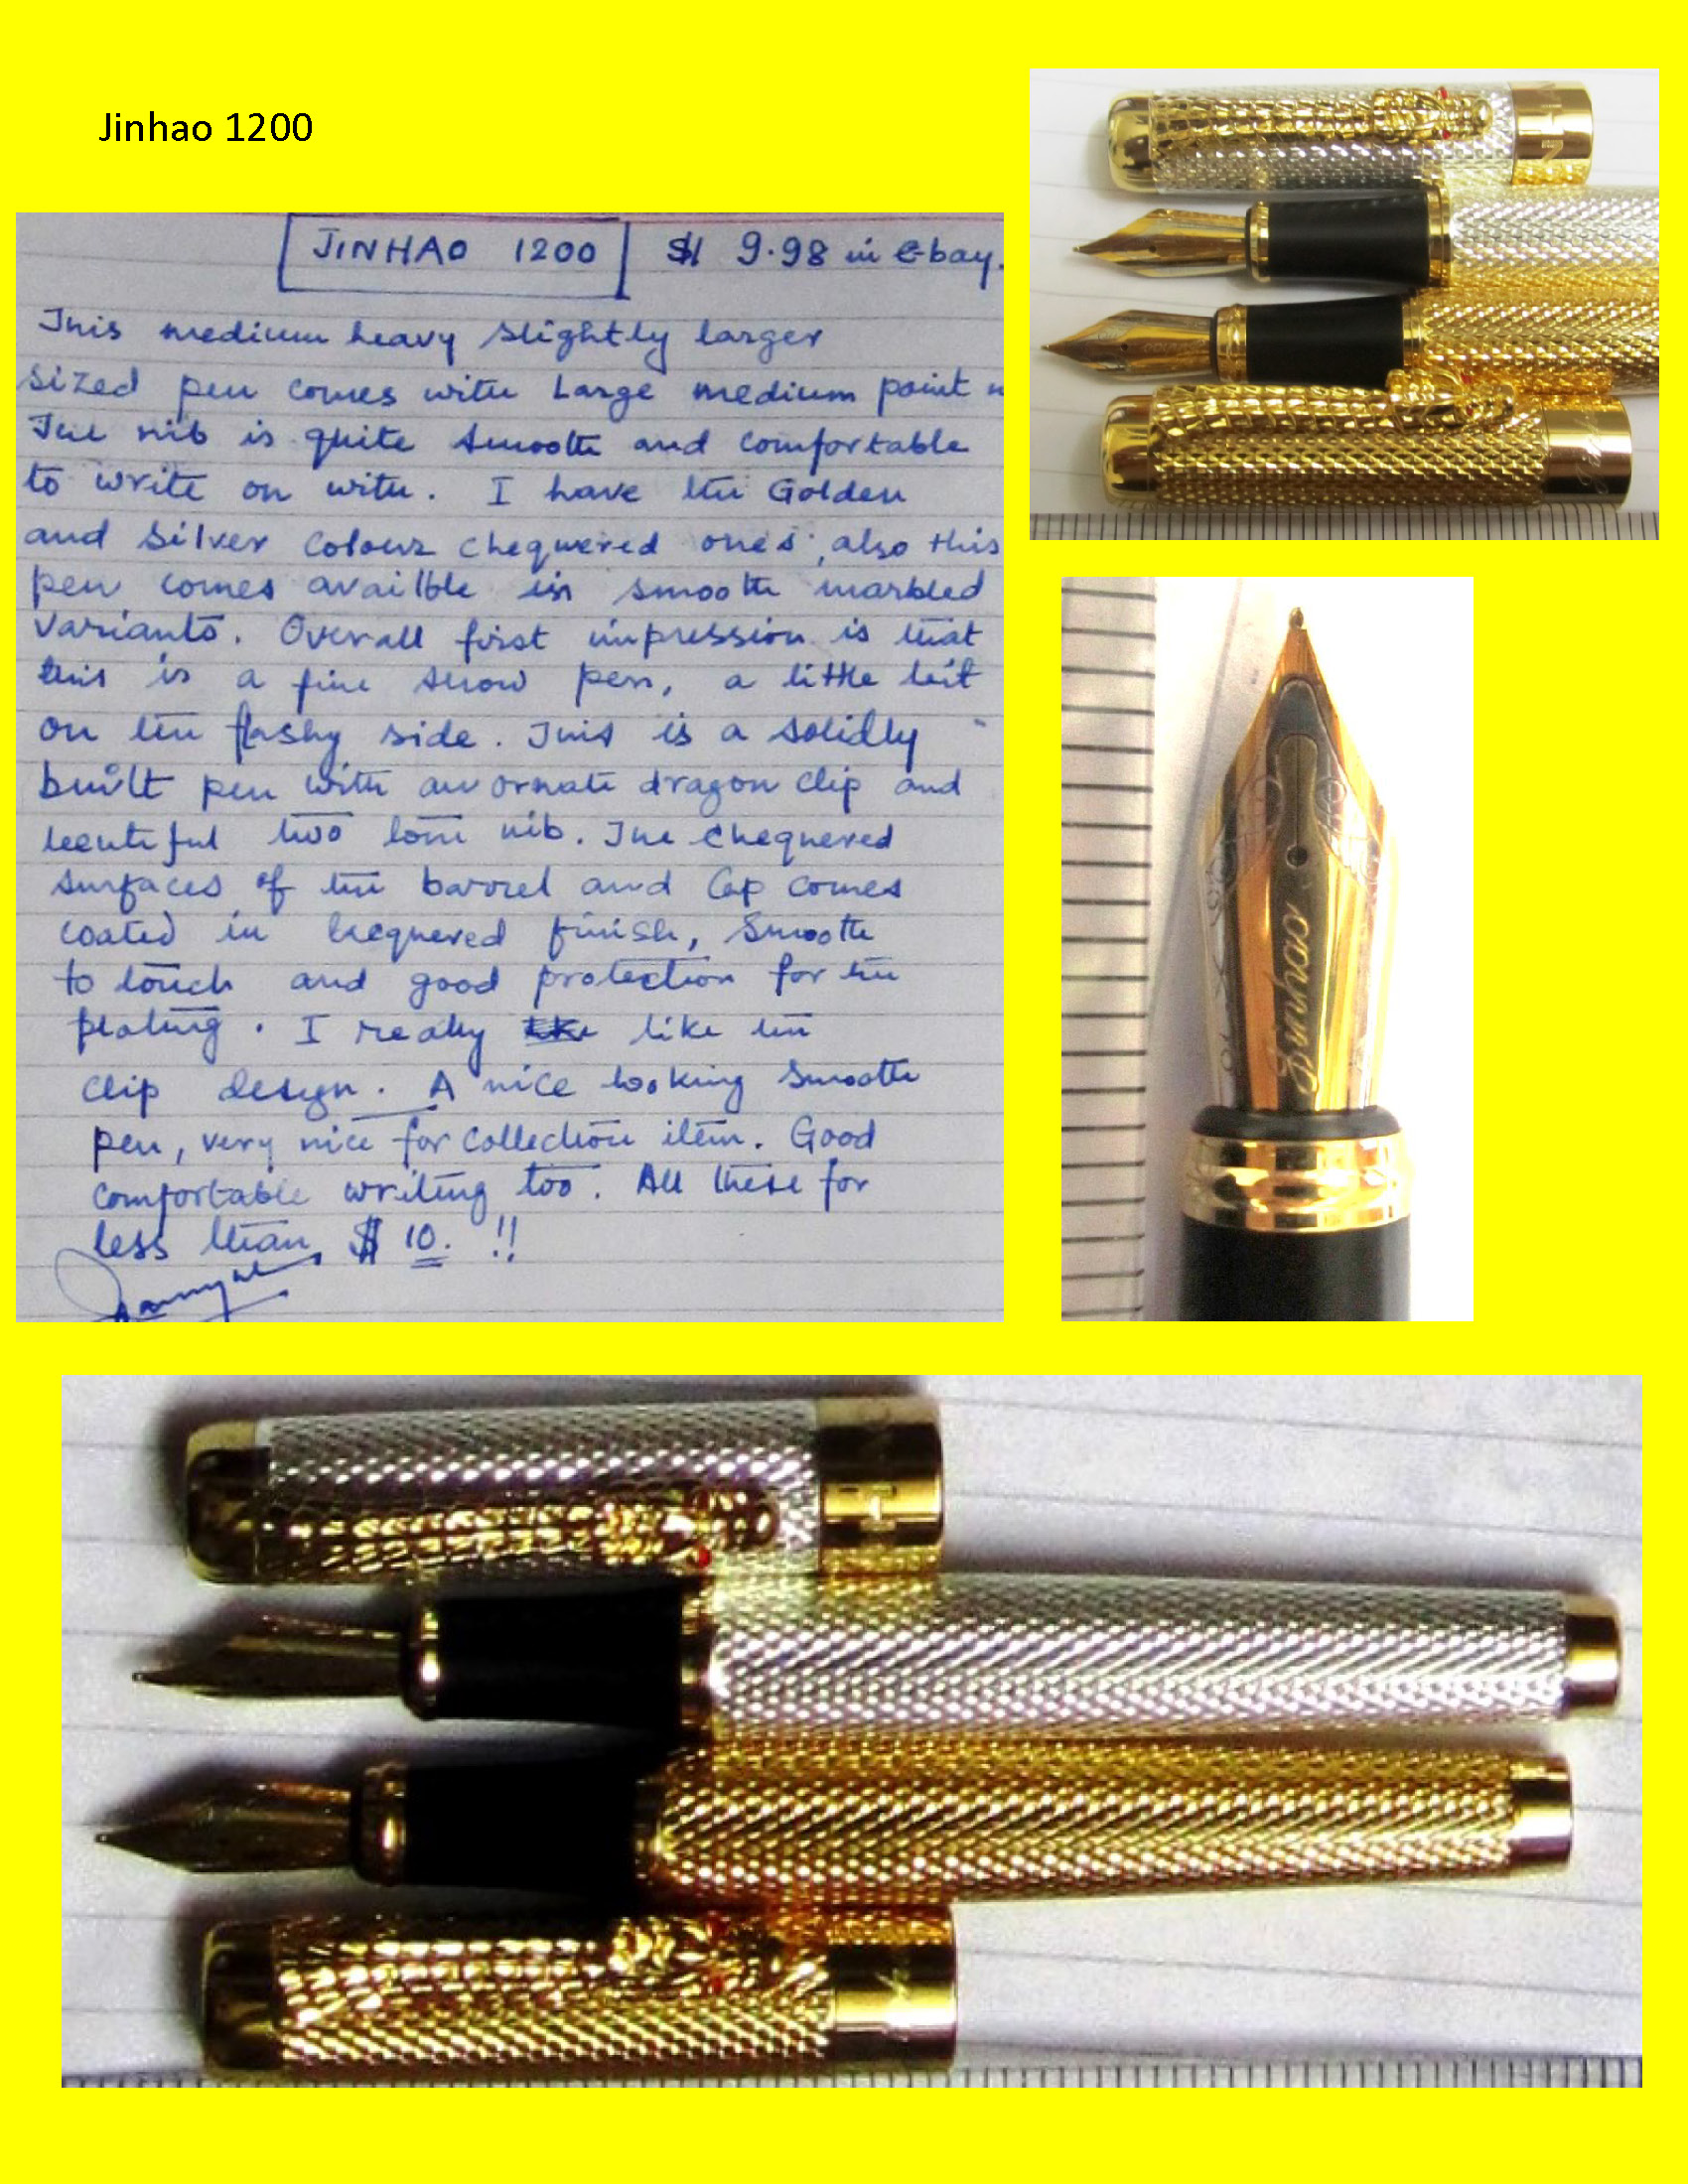 Jinhao 1200
JINHAO 1200 $ 9.98 in e-bay.
This medium heavy slightly larger
sized pen comes with Large medium point n
The nib is quite smooth and comfortable
to write on with. I have the Golden
and Silver Colour Chequered ones, also this
pen comes availble in smooth marbled
variants. Overall first impression is that
this is a fine show pen, a little bit
on the flashy side. This is a solidly
built pen with an ornate dragon clip and
beeutiful two tone nib. The chequered
surfaces of the barrel and Cap comes
coated in lacquered finish, Smooth
to touch and good protection for the
plating. I really like the
clip design. A nice looking smooth
pen, very nice for collection item. Good
comfortable writing too. All these for
less than $ 10. !!
Jinhao